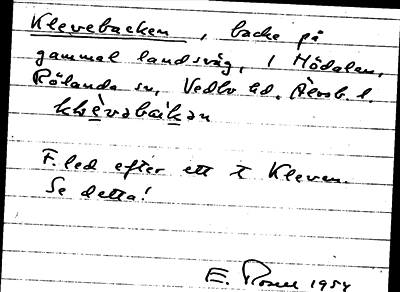 Klevebacken, backe på
gammal landsväg, i Hödalen,
Rölanda sn, Vedbo hd. Älvsb. l.
klèvəbakən
F. led efter ett t Kleven.
Se detta!
E. 1954